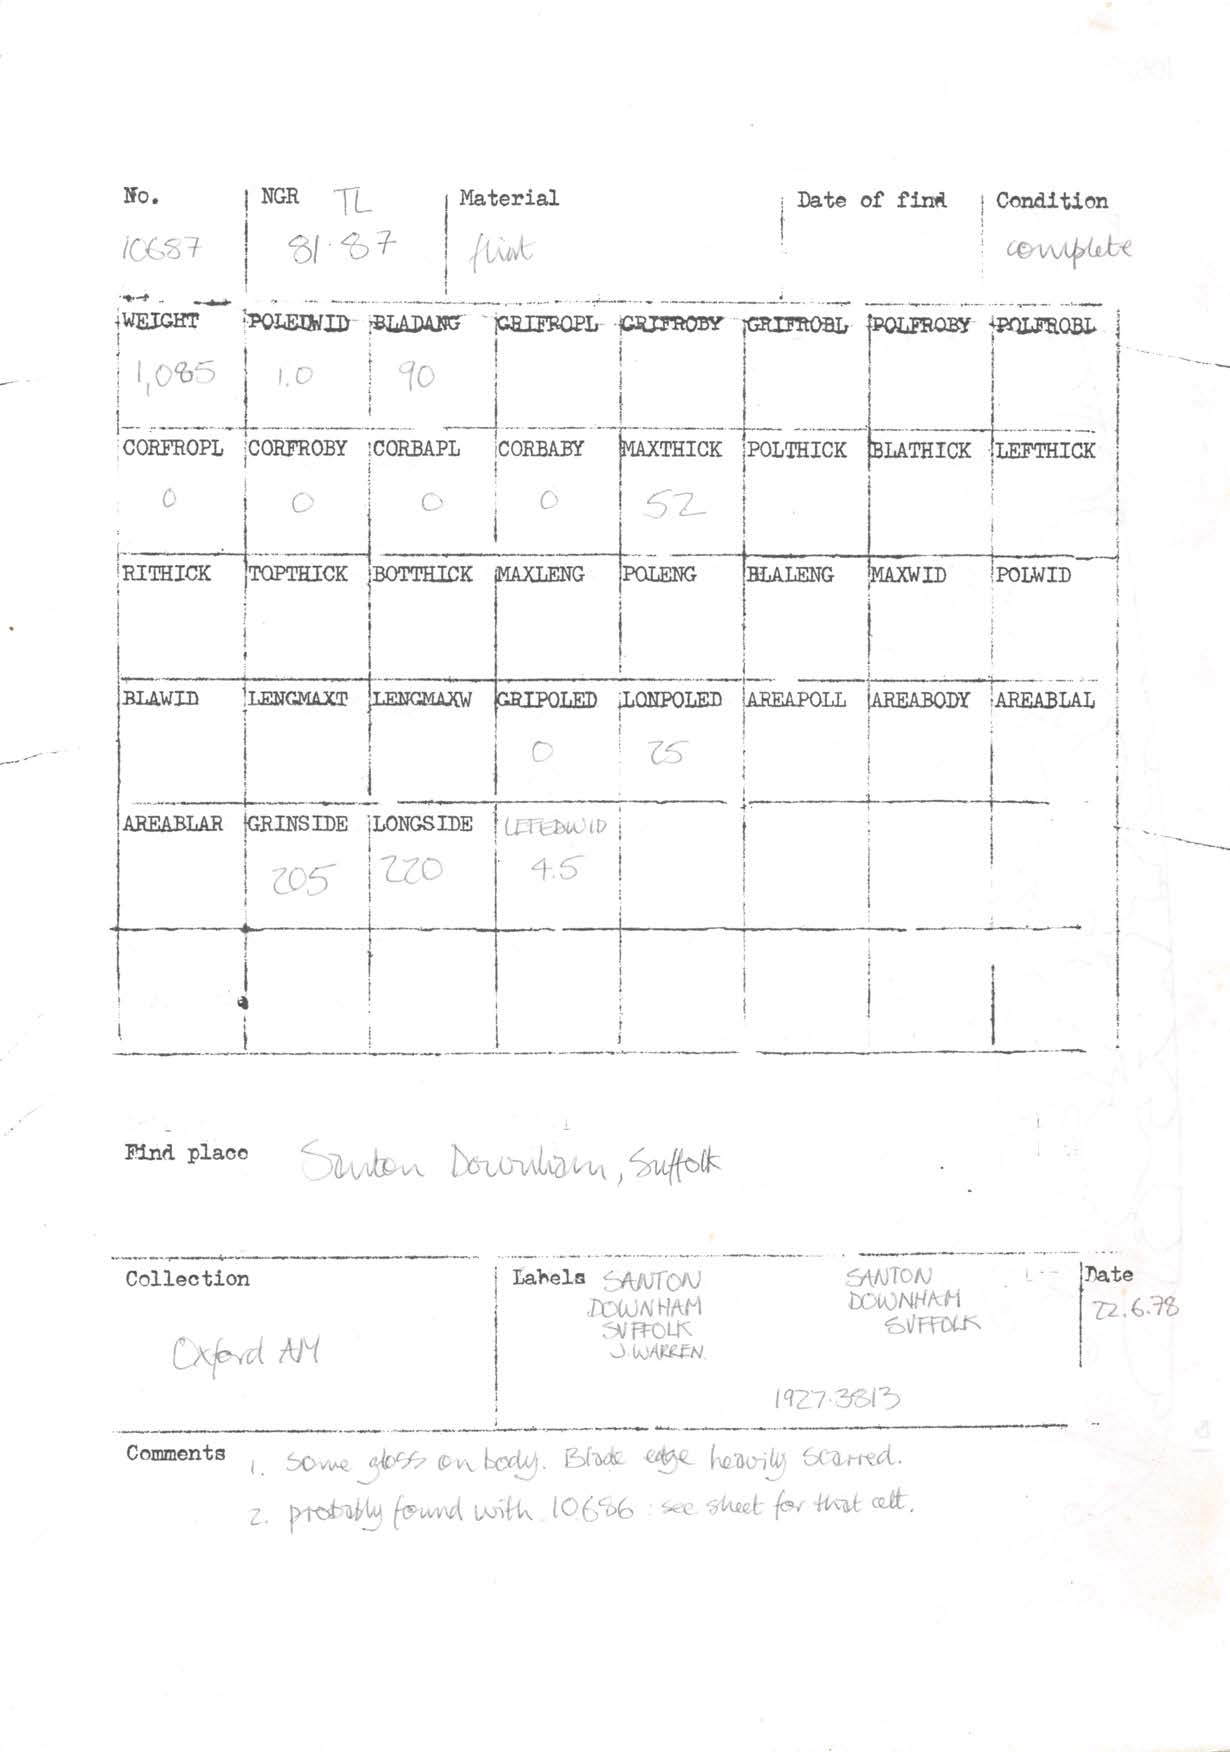 No. NGR TL Material Date of find Condition
10687 81.87 flint complete
WEIGHT POLEDWID BLADANG GRIFROPL GRIFROBY GRIFROBL POLFROBY POLFROBL
1,085 1.0 90
CORFROPL CORFROBY CORBAPL CORBABY MAXTHICK POLTHICK BLATHICK LEFTHICK
0 0 0 0 52
RITHICK TOPTHICK BOTTHICK MAXLENG POLENG BLALENG MAXWID POLWID
BLAWID LENGMAXT LENGMAXW GRIPOLED LONPOLED AREAPOLL AREABODY AREABLAL
0 25
AREABLAR GRINSIDE LONGSIDE LEFEDWID
205 220 4.5
Find place Santon Downham, Suffolk
Collection
Oxford AM
Labels SANTON
DOWNHAM
SUFFOLK
J. WARREN.
SANTON
DOWNHAM
SUFFOLK
1927.3813
Date
22.6.78
Comments 1. Some gloss on body. Blade edge heavily scarred.
2. probably found with 10686 : see sheet for that celt.